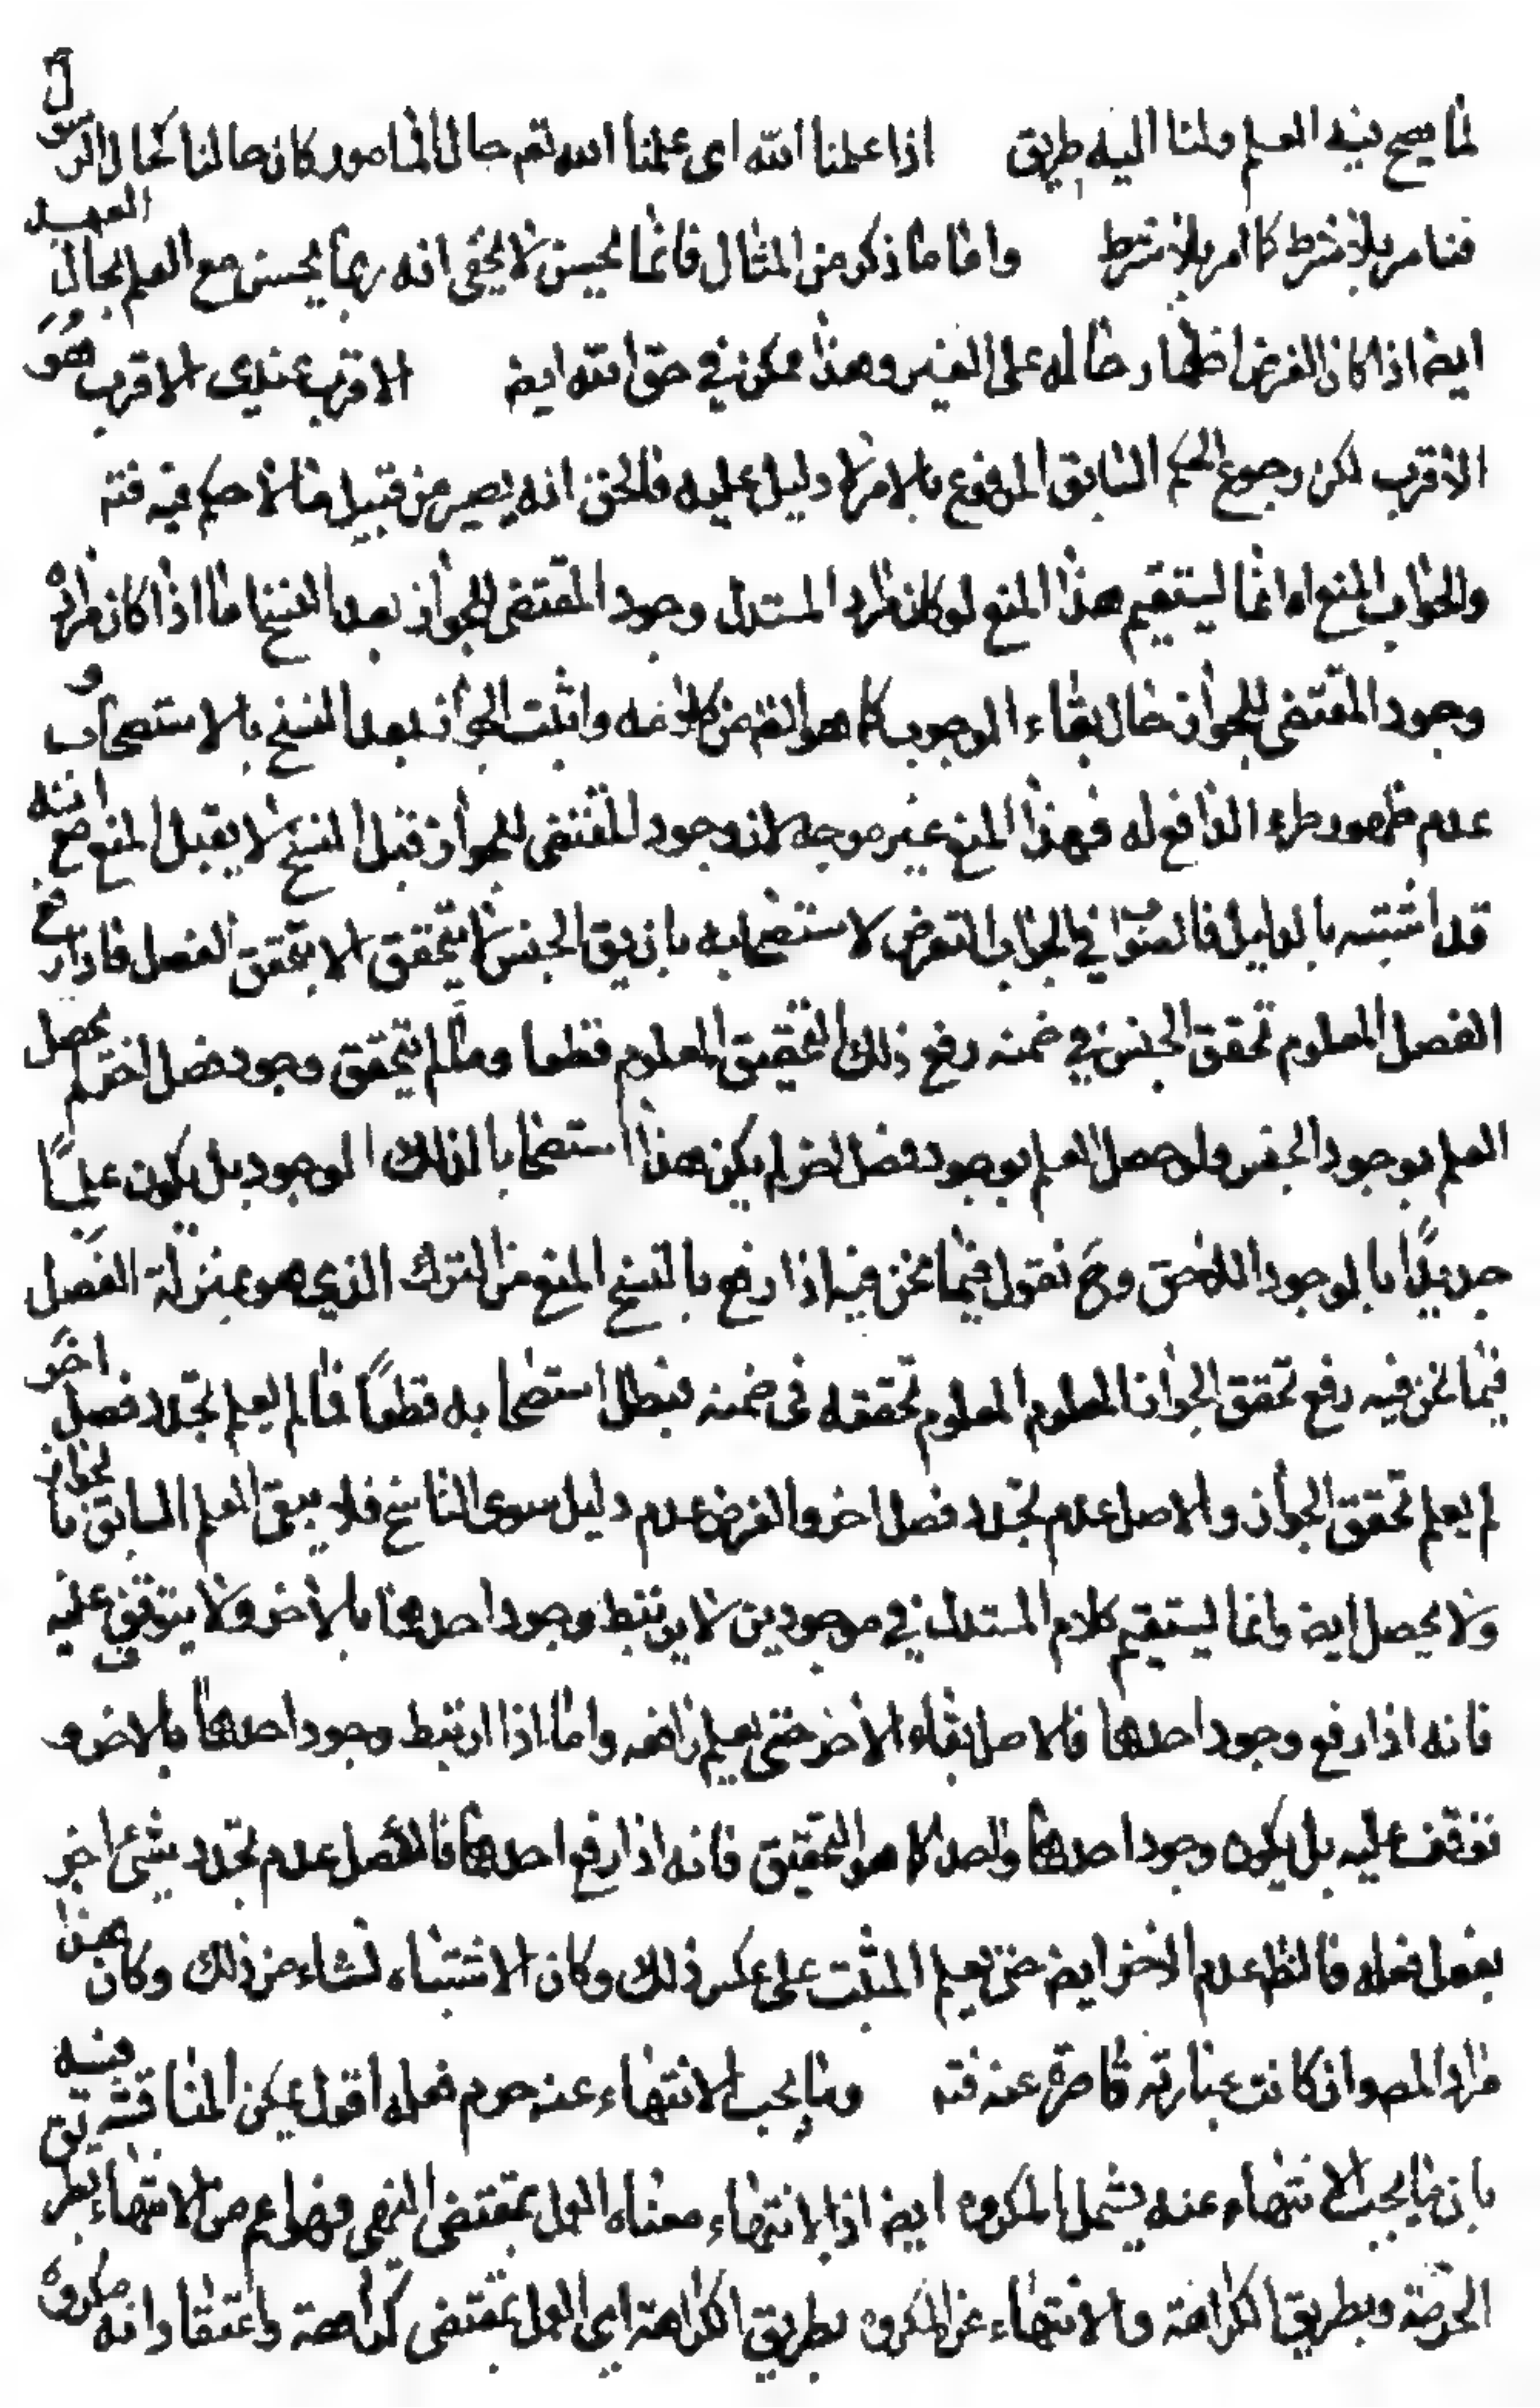 لما يصح فيه العلم ولنا اليه طريق اذا علمنا الله اى علمنا الله تعم حال المامور كان حالنا كحال الرسول
فنامر بلا شرط كما امر بلا شرط واما ما ذكر من المثال فانما يحسن لا يخفى انه ربما يحسن مع العلم بحال العبد
ايضا اذا كان الغرض اظهار حاله على الغير وهذا ممكن في حق الله ايضا الاقرب عندى الاقرب هو
الاقرب لكن رجوع الحكم السابق المرفوع بالامر لا دليل عليه فالحق انه يصير من قبيل ما لا حكم فيه فته
والجواب المنع اه انما يستقيم هذا المنع لو كان مراد المستدل وجود المقتضى للجواز بعد النسخ اما اذا كان مراده
وجود المقتضى للجواز حال بقاء الوجوب كما هو الظ من كلامه واثبت الجواز بعد النسخ بالاستصحاب و
عدم ظهور طرء الدافع له فهذا المنع غير موجه لان وجود المقتضى للجواز قبل النسخ لا يقبل المنع مع انه
قد اثبته بالدليل فالصواب في الجواب التعرض لاستصحابه بان يق الجنس لا يتحقق الا بتحقق الفصل فاذا رفع
الفصل المعلوم تحقق الجنس في ضمنه رفع ذلك التحقيق المعلوم قطعا وما لم يتحقق وجود فصل اخر لم يحصل
العلم بوجود الجنس ولو حصل العلم بوجود فصل اخر لم يكن هذا استصحابا لذلك الوجود بل يكون علما
جديدا بالوجود اللاحق وح نقول فيما نحن فيه اذا رفع بالنسخ المنع من الترك الذي هو بمنزلة الفصل
فيما نحن فيه رفع تحقق الجواز المعلوم المعلوم تحققه فى ضمنه فبطل استصحابه قطعا فما لم يعلم تجدد فصل اخر
لم يعلم تحقق الجواز والاصل عدم تجدد فصل اخر والفرض عدم دليل سوى الناسخ فلا يبقى العلم السابق بالجواز
ولا يحصل ايضا وانما يستقيم كلام المستدل في موجودين لا يرتبط وجود احدهما بالاخر ولا يتوقف عليه
فانه اذا رفع وجود احدهما فالاصل بقاء الاخر حتى يعلم رافعه واما اذا ارتبط وجود احدهما بالاخر و
توقف عليه بل يكون وجود احدهما واحد كما هو التحقيق فانه اذا رفع احدهما فالاصل عدم تجدد شئ اخر
بفعل فعله فالظ عدم الاخر ايضا حتى يعلم المثبت على عكس ذلك وكان الاشتباه نشاء من ذلك وكان هذا
مراد المص وان كانت عبارته قاصرة عنه فته وما يجب الانتهاء عنه حرم فعله اقول يمكن المناقشة فيه بان يق
بان ما يجب الانتهاء عنه يشمل المكروه ايضا اذ الانتهاء معناه العمل بمقتضى النهى فهو اعم من الانتهاء بطريق
الحرمة وبطريق الكراهة والانتهاء عن المكروه بطريق الكراهة اى العمل بمقتضى كراهته واعتقاد انه مكروه